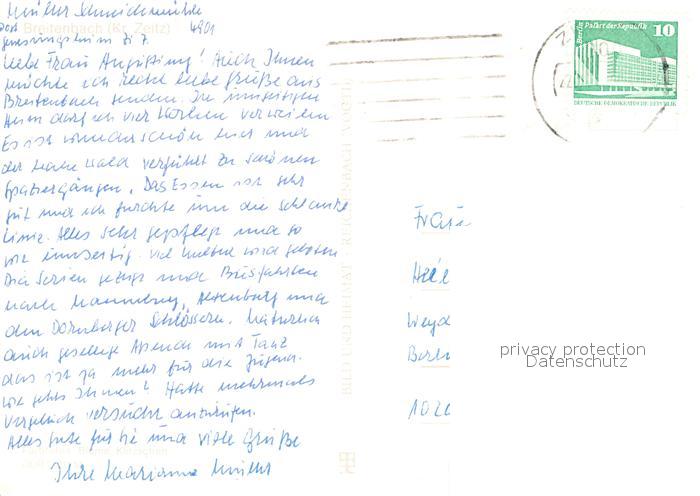 Müller Schneidemühle
Post Breitenbach (Kr. Zeitz) 4901
Genesungsheim Zi 7.
Liebe Frau Augustiny! Auch Ihnen
möchte ich recht liebe Grüße aus
Breitenbach senden. Im
Heim darf ich vier Wochen verweilen
Es ist wunderschön hier und
der nahe Wald verführt zu schönen
Spaziergängen. Das Essen ist sehr
gut und ich fürchte um die schlanke
Linie. Alles sehr gepflegt und so
viel wird geboten
Dia Serien gezeigt und Busfahrten
nach Naumburg, Altenburg und
den Dornburger Schlössern. Natürlich
auch gesellige Abende mit Tanz
das ist ja mehr für die Jugend.
Wie gehts Ihnen? Hatte mehrmals
vergeblich versucht anzurufen.
Alles Gute für Sie und viele Grüße
Ihre Marianne Müller
BILD UND HEIMAT REICHENBACH VOGTL
Berlin, Palast der Republik
10
DEUTSCHE DEMOKRATISCHE REPUBLIK
Frau
Weyd
Berli
1020
privacy protection
Datenschutz